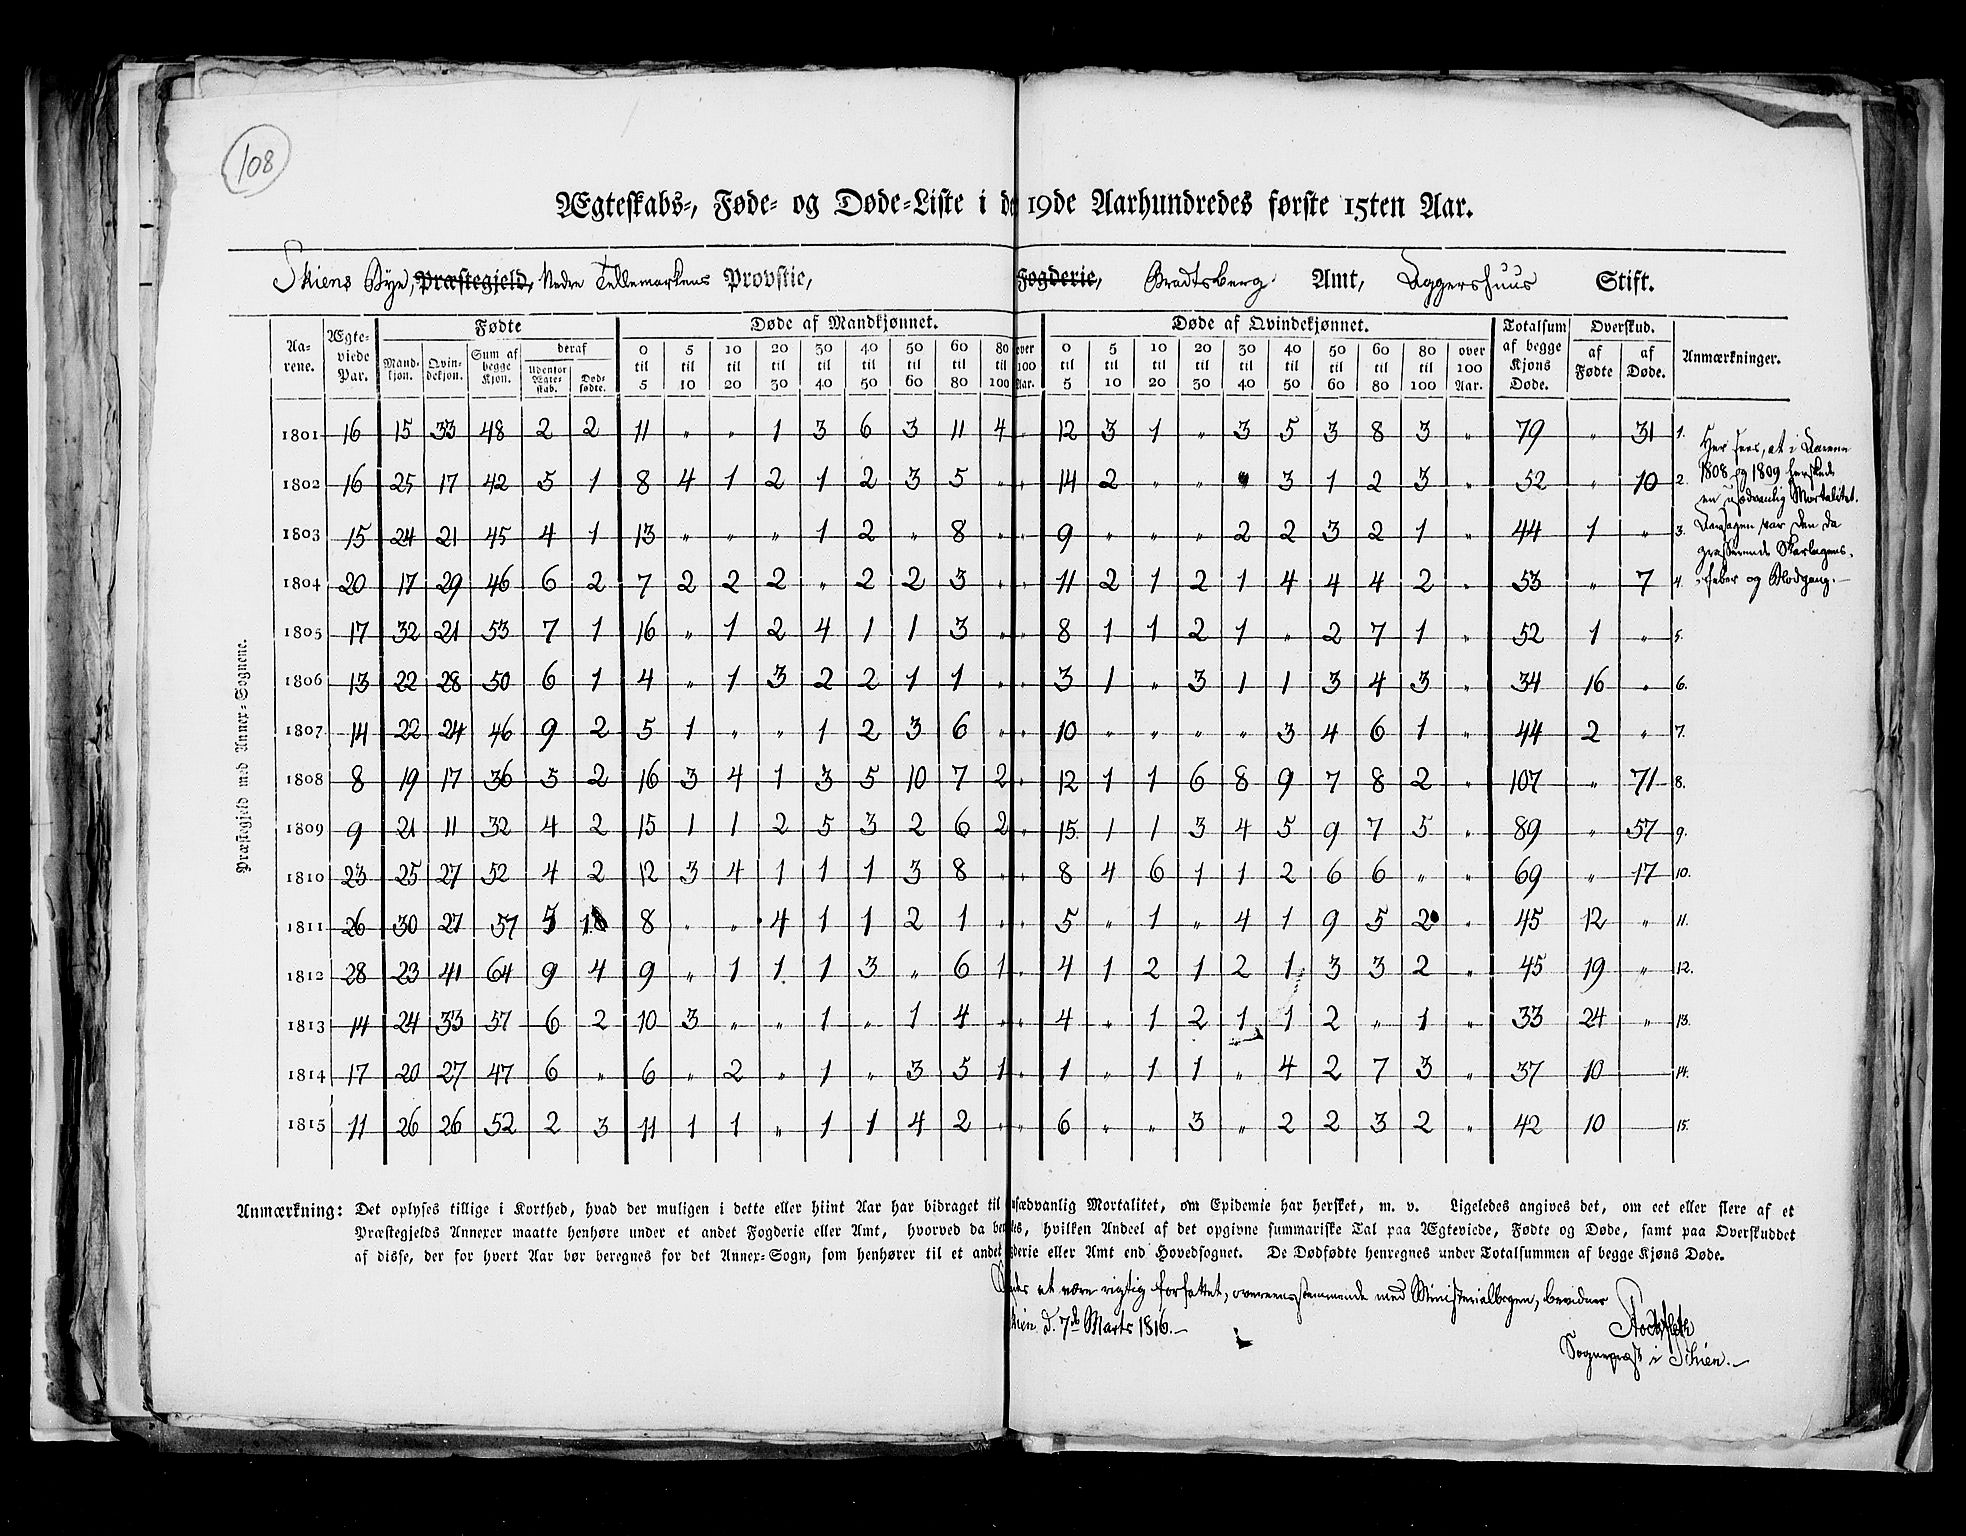 108
Ægteskabs-, Føde- og Døde-Liste i de 19de Aarhundredes første 15ten Aar.
Skiens Bye, Præstegjeld, Nedre Tellemarkens Provstie, Fogderie, Bradtsberg Amt, Aggershuus Stift.
Præstegjeld med Annex-Sognene.
Aarene. Ægteviede Par. Fødte Døde af Mandkjønnet. Døde af Qvindekjønnet. Totalsum af begge Kjøns Døde. Overskud. Anmærkninger.
Mandkjøn. Qvindekjøn. Sum af begge Kjøn. deraf Udenfor Ægteskab. Dødfødte. 0 til 5 5 til 10 10 til 20 20 til 30 30 til 40 40 til 50 50 til 60 60 til 80 80 til 100 over 100 Aar. 0 til 5 5 til 10 10 til 20 20 til 30 30 til 40 40 til 50 50 til 60 60 til 80 80 til 100 over 100 Aar. af Fødte af Døde.
1801 16 15 33 48 2 2 11 " " 1 3 6 3 11 4 " 12 3 1 " 3 5 3 8 3 " 79 " 31 1.
1802 16 25 17 42 5 1 8 4 1 2 1 2 3 5 " " 14 2 " " " 3 1 2 3 " 52 " 10 2.
1803 15 24 21 45 4 1 13 " " " 1 2 " 8 " " 9 " " " 2 2 3 2 1 " 44 1 " 3.
1804 20 17 29 46 6 2 7 2 2 2 " 2 2 3 " " 11 2 1 2 1 4 4 4 2 " 53 " 7 4.
1805 17 32 21 53 7 1 16 " 1 2 4 1 1 3 " " 8 1 1 2 1 " 2 7 1 " 52 1 " 5.
1806 13 22 28 50 6 1 4 " 1 3 2 2 1 1 " " 3 1 " 3 1 1 3 4 3 " 34 16 " 6.
1807 14 22 24 46 9 2 5 1 " " 1 2 3 6 " " 10 " " " " 3 4 6 1 " 44 2 " 7.
1808 8 19 17 36 5 2 16 3 4 1 3 5 10 7 2 " 12 1 1 6 8 9 7 8 2 " 107 " 71 8.
1809 9 21 11 32 4 2 15 1 1 2 5 3 2 6 2 " 15 1 1 3 4 5 9 7 5 " 89 " 57 9.
1810 23 25 27 52 4 2 12 3 4 1 1 1 3 8 " " 8 4 6 1 1 2 6 6 " " 69 " 17 10.
1811 26 30 27 57 5 8 " " 4 1 1 2 1 " " 5 " 1 " 4 1 9 5 2 " 45 12 " 11.
1812 28 23 41 64 9 4 9 " 1 1 1 3 " 6 1 " 4 1 2 1 2 1 3 3 2 " 45 19 " 12.
1813 14 24 33 57 6 2 10 3 " " 1 " 1 4 " " 4 " 1 2 1 1 2 " 1 " 33 24 " 13.
1814 17 20 27 47 6 " 6 " 2 " 1 " 3 5 1 " 1 " 1 1 " 4 2 7 3 " 37 10 14.
1815 11 26 26 52 2 3 11 1 1 " 1 1 4 2 " " 6 " " 3 " 2 2 3 2 " 42 10 15.
Her sees, at i Aarene
1808 og 1809 herskede
en usædvanlig Mortalitet.
Aarsagen var den da
grasserende Skarlagens-
feber og Blodgang.—
Anmærkning: Det oplyses tillige i Korthed, hvad der muligen i dette eller hiint Aar har bidraget til usædvanlig Mortalitet, om Epidemie har hersket, m. v. Ligeledes angives det, om eet eller flere af et
Præstegjelds Annexer maatte henhøre under et andet Fogderie eller Amt, hvorved da bemeldes, hvilken Andeel af det opgivne summariske Tal paa Ægteviede, Fødte og Døde, samt paa Overskuddet
af disse, der for hvert Aar bør beregnes for det Annex-Sogn, som henhører til et andet gderie eller Amt end Hovedsognet. De Dødfødte henregnes under Totalsummen af begge Kjøns Døde.
at være rigtig forfattet, overeensstemmende med Ministerialbogen, bevidner
kien d. 7de Marts 1816.—
Stockfleth
Sognepræst i Schien.—